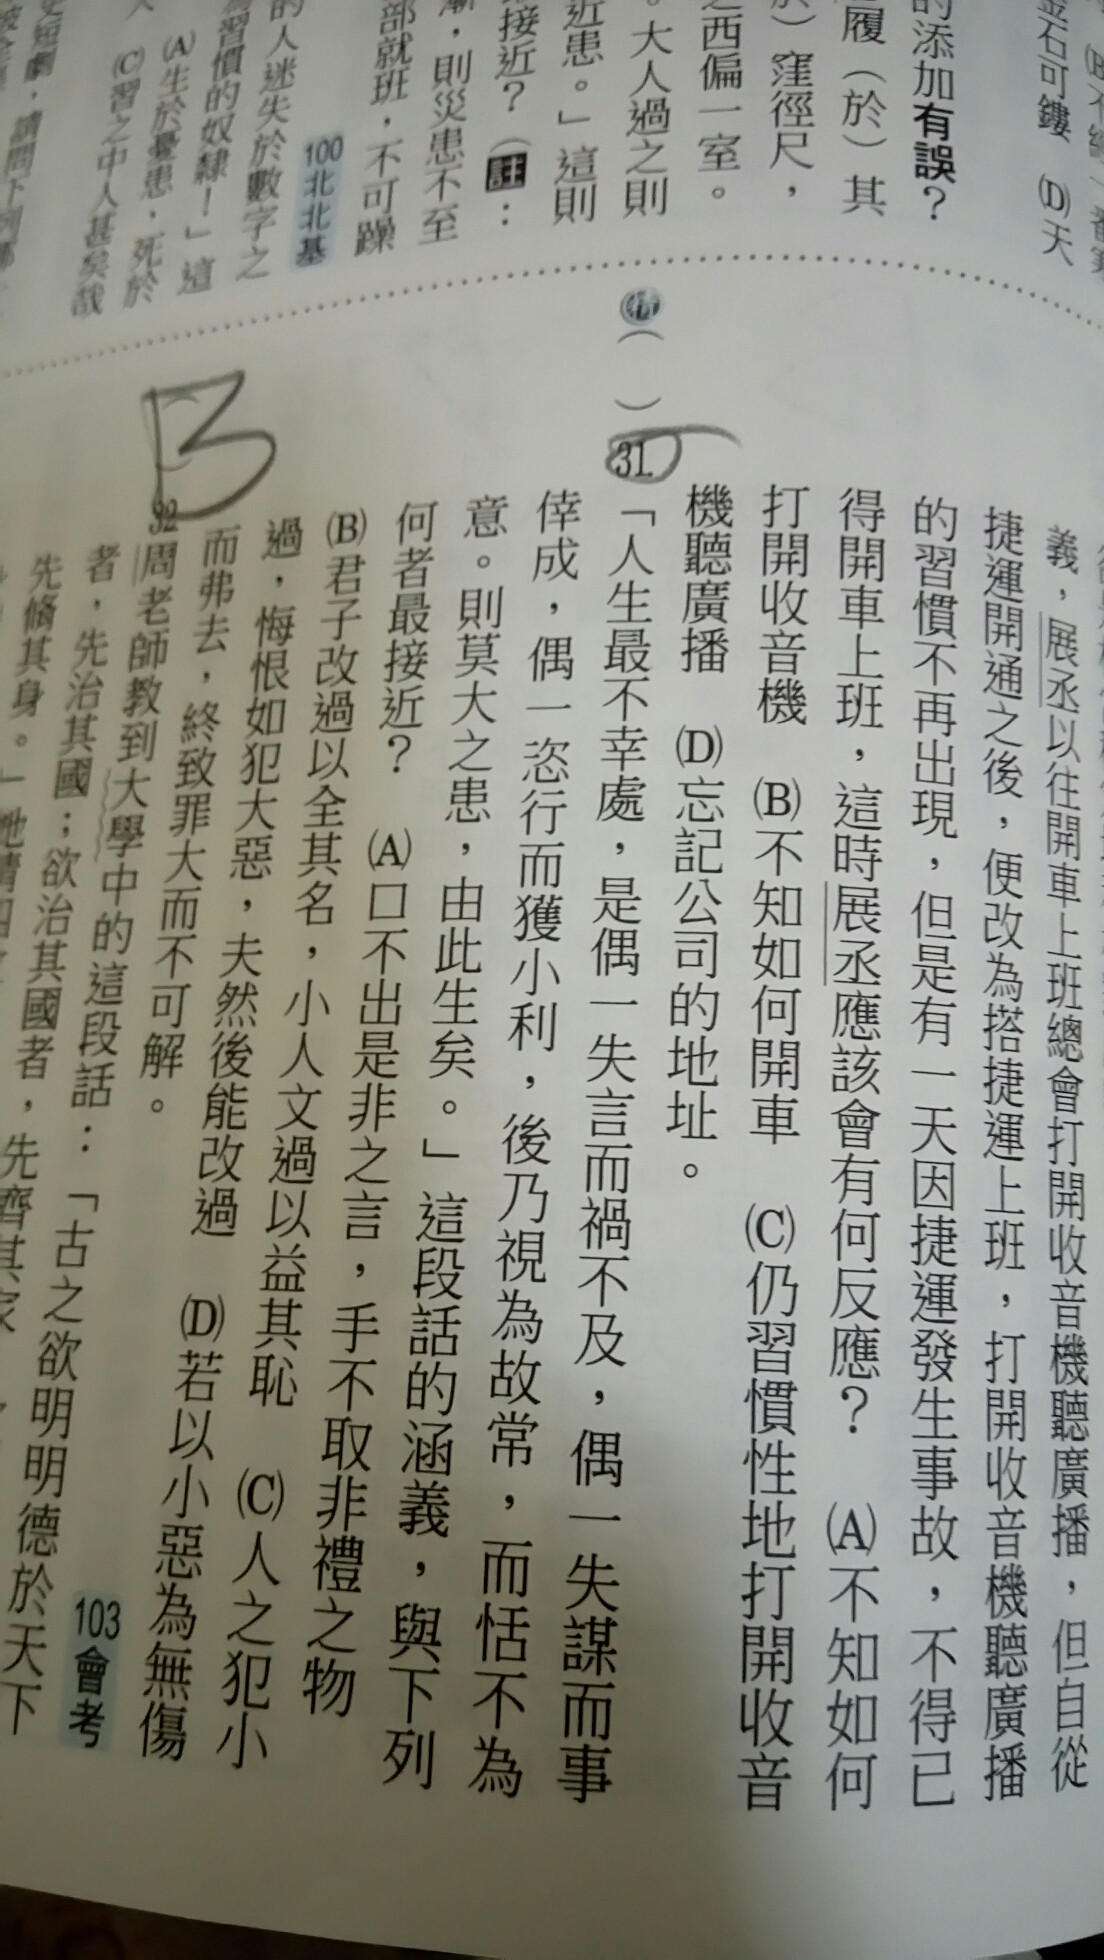 (B)不
金石可鏤 (D)天
的添加有誤？
履（於）其
窪徑尺，
之西偏一室。
。大人過之則
近患。」這則
接近？（註：
漸，則災患不至
部就班，不可躁
100北北基
的人迷失於數字之
習慣的奴隸！」這
(A)生於憂患，死於
(C)習之中人甚矣哉
義，展丞以往開車上班總會打開收音機聽廣播，但自從
捷運開通之後，便改為搭捷運上班，打開收音機聽廣播
的習慣不再出現，但是有一天因捷運發生事故，不得已
得開車上班，這時展丞應該會有何反應？ (A)不知如何
打開收音機 (B)不知如何開車 (C)仍習慣性地打開收音
機聽廣播 (D)忘記公司的地址。
（ ）31.「人生最不幸處，是偶一失言而禍不及，偶一失謀而事
倖成，偶一恣行而獲小利，後乃視為故常，而恬不為
意。則莫大之患，由此生矣。」這段話的涵義，與下列
何者最接近？ (A)口不出是非之言，手不取非禮之物
(B)君子改過以全其名，小人文過以益其恥 (C)人之犯小
過，悔恨如犯大惡，夫然後能改過 (D)若以小惡為無傷
而弗去，終致罪大而不可解。
103會考
B
32周老師教到大學中的這段話：「古之欲明明德於天下
者，先治其國；欲治其國者，先齊其家
先脩其身。」